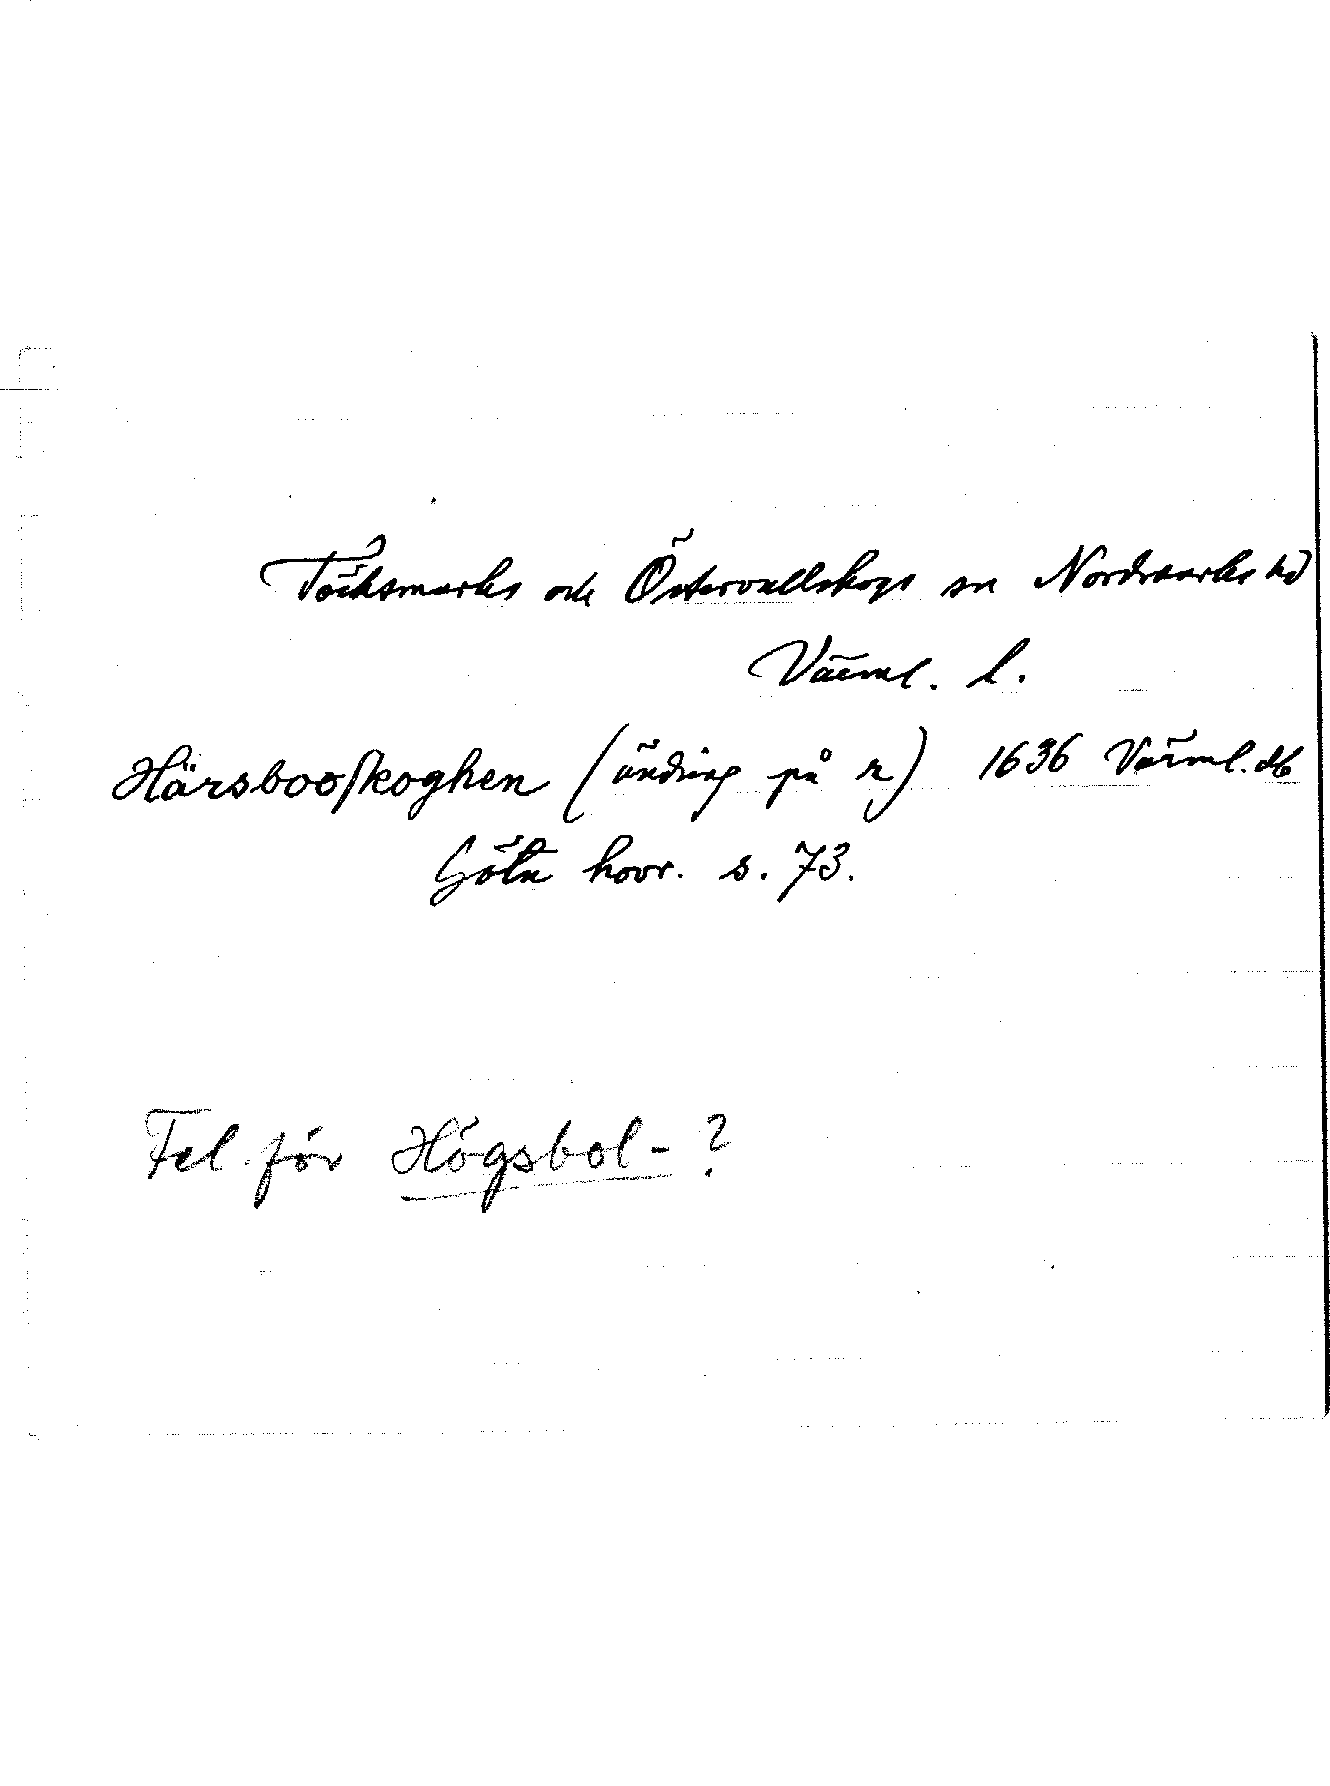 Töcksmarks och Östervallskogs sn Nordmarks hd
Värml. l.
Härsbooskoghen (ändring på r) 1636 Värml. db
Göta hovr. s. 73.
Fel för Högsbol- ?